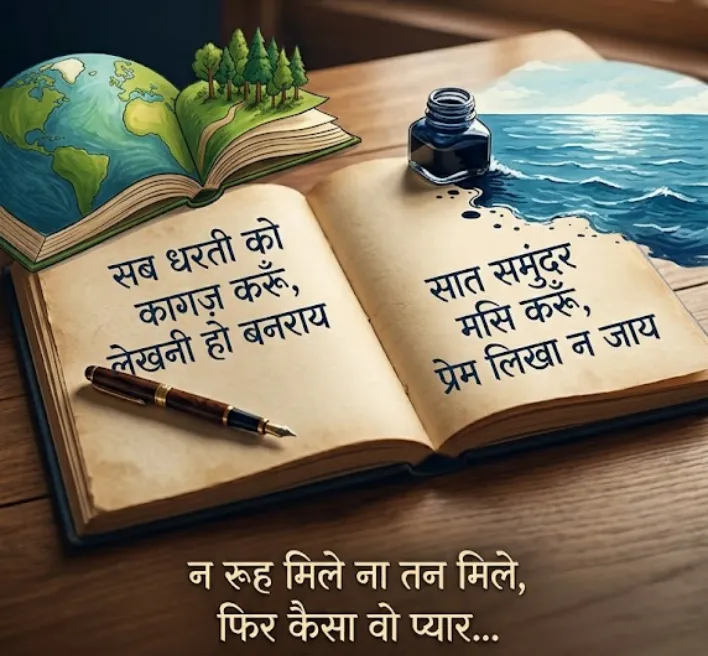 सब धरती को
कागज़ करूँ,
लेखनी हो बनराय
सात समुंदर
मसि करूँ,
प्रेम लिखा न जाय
न रूह मिले ना तन मिले,
फिर कैसा वो प्यार...